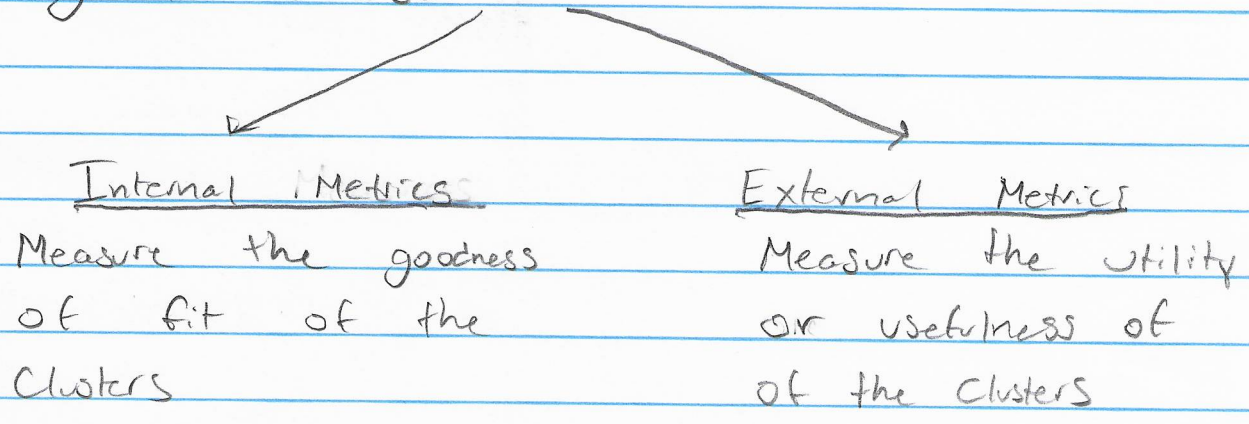 Internal Metrics
Measure the goodness
of fit of the
Clusters
External Metrics
Measure the utility
or usefulness of
of the Clusters